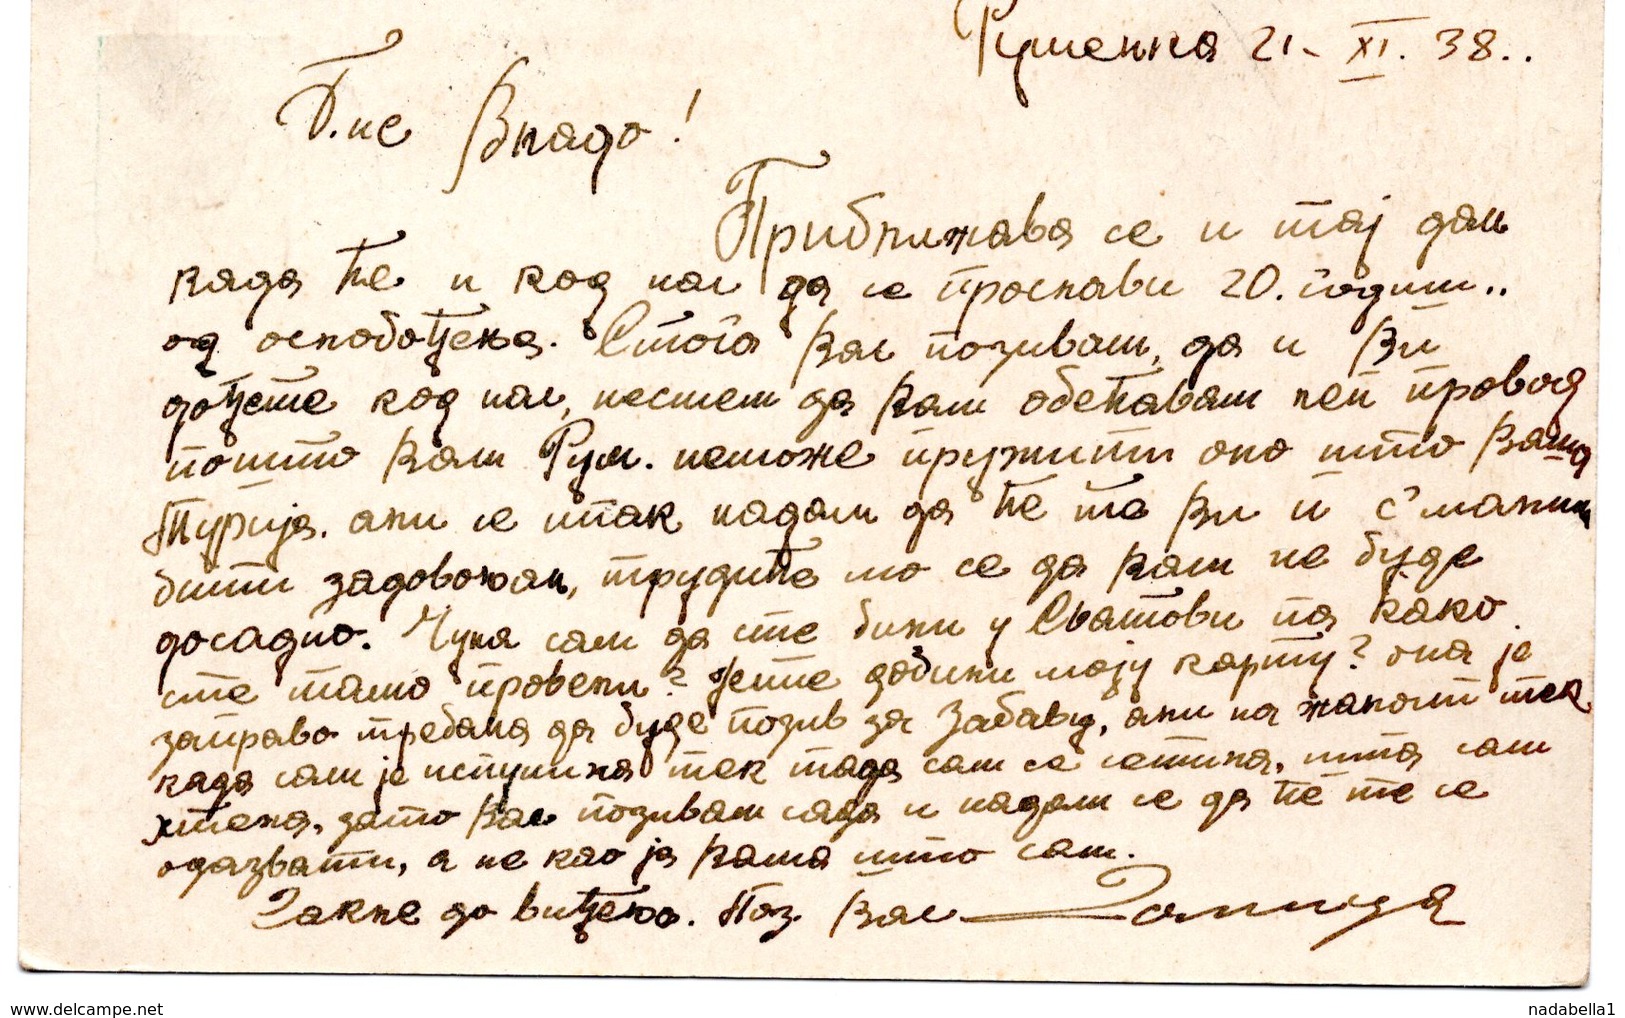 Руменка 21- XI. 38..
Г.не Владо!
Приближава се и тај дан
када ће и код нас да се прослави 20. годиш..
од ослобођења. Стога Вас позивам, да и Ви
дођете код нас, несмем да Вам обећавам леп провод
пошто Вам Рум. неможе пружити оно што Ваша
Турија. али се ипак надам да ће те Ви и с' малим
бити задовољан, трудиће мо се да Вам не буде
досадно. Чула сам да сте били у Сватови па како
сте тамо провели? Јесте добили моју карту? она је
заправо требала да буде позив за Забаву, али на жалост тек
када сам је испушила тек тада сам се сетила, шта сам
хтела, зато Вас позивам сада и надам се да ће те се
одазвати, а не као ја Вама што сам.
Дакле до виђења. Поз. Вас
delcampe.net
nadabella1